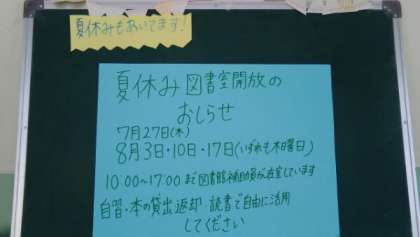 夏休みもあいてます!
夏休み図書室開放の
おしらせ
7月27日(木)
8月3日・10日・17日(いずれも木曜日)
10:00〜17:00まで図書館補助員が在室しています
自習・本の貸出返却・読書で自由に活用
してください